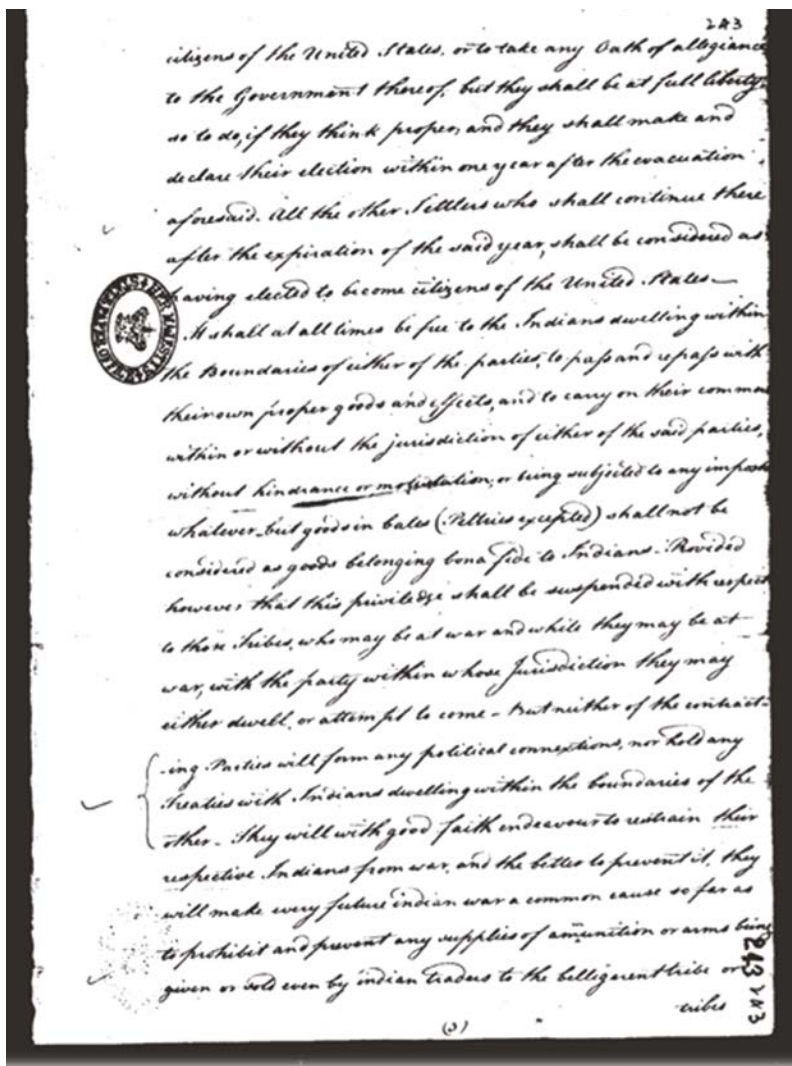 243
citizens of the United States, or to take any Oath of allegiance
to the Government thereof, but they shall be at full liberty
so to do, if they think proper, and they shall make and
declare their election within one year after the evacuation
aforesaid. All the other Settlers who shall continue there
after the expiration of the said year, shall be considered as
having elected to become citizens of the United States—
It shall at all times be free to the Indians dwelling within
the Boundaries of either of the parties, to pass and repass with
their own proper goods and effects, and to carry on their comme
within or without the jurisdiction of either of the said parties,
without hindrance or molestation, or being subjected to any impost
whatever, but goods in bales (Peltries excepted) shall not be
considered as goods belonging bona fide to Indians. Provided
however that this priviledge shall be suspended with respect
to those Tribes, who may be at war and while they may be at
war, with the party within whose Jurisdiction they may
either dwell, or attempt to come – But neither of the contract-
-ing Parties will form any political connextions, nor hold any
Treaties with Indians dwelling within the boundaries of the
other – They will with good faith endeavour to restrain their
respective Indians from war, and the better to prevent it, they
will make every future indian war a common cause so far as
to prohibit and prevent any supplies of ammunition or arms being
given or sold even by indian traders to the belligerent tribe or
tribes
(3)
243
243